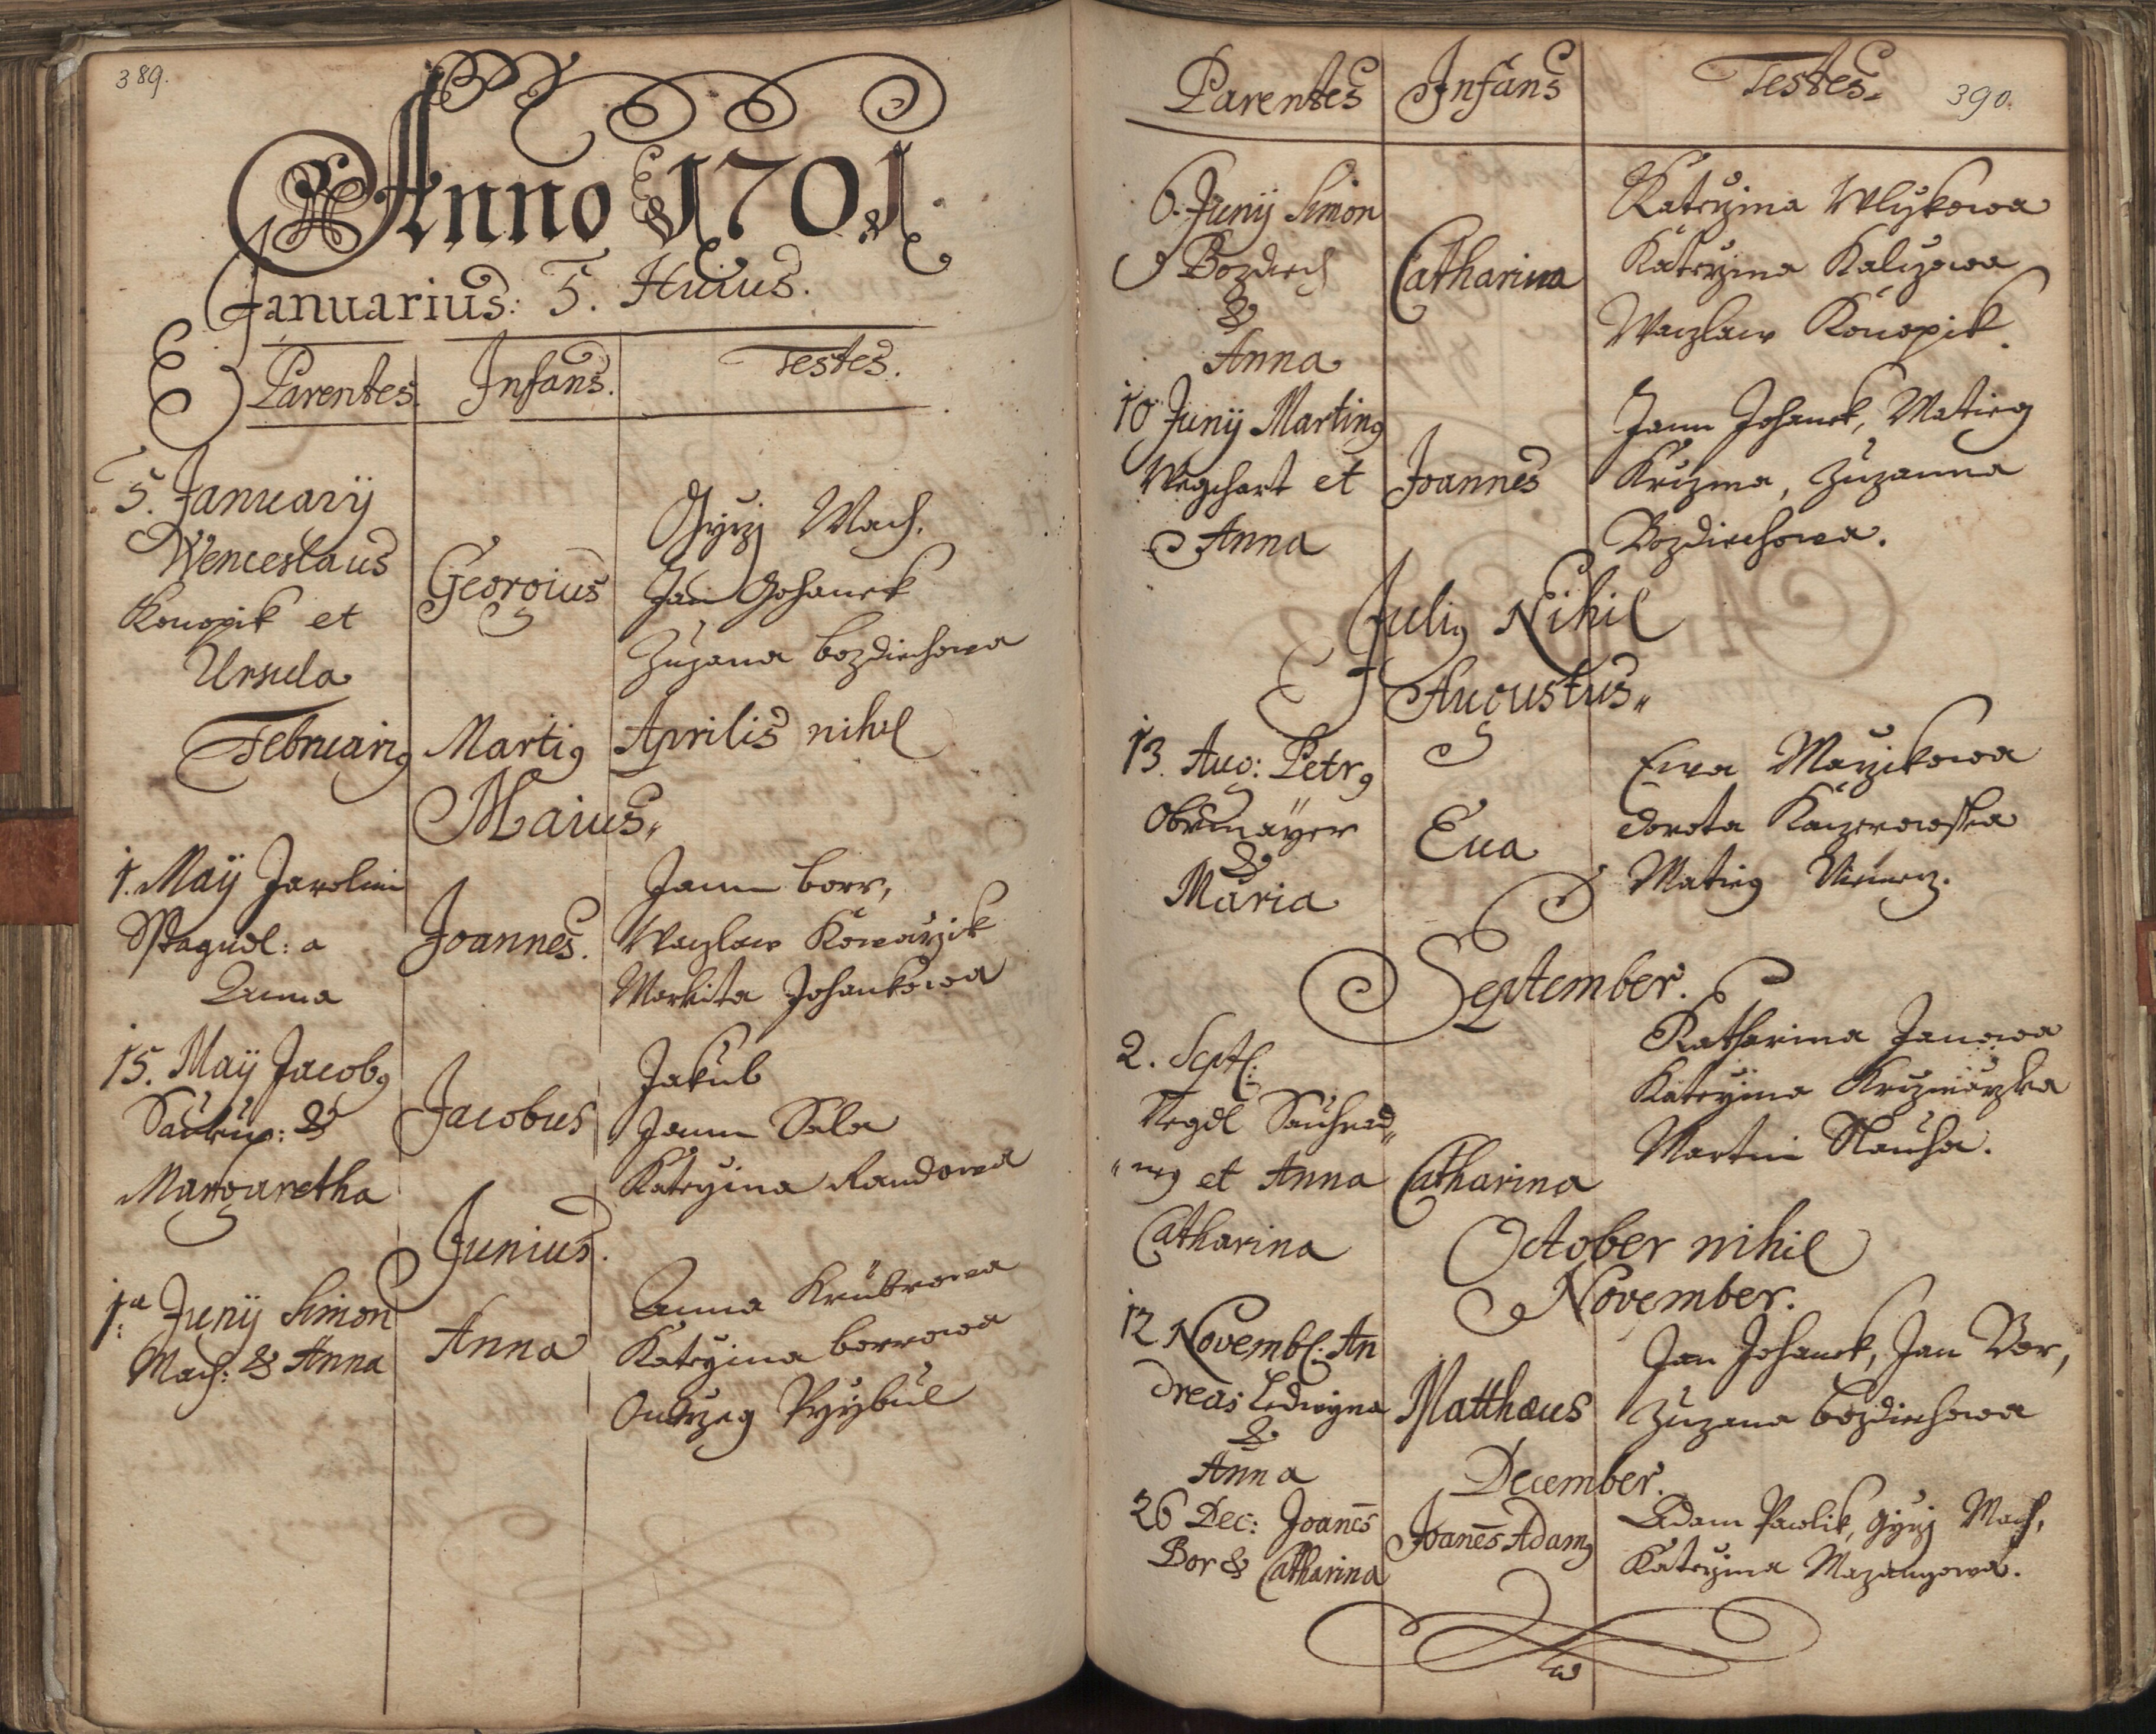 389.
Anno 1701.
Januarius: 5. Huius.
Parentes. Infans. Testes.
5. Januarÿ
Wenceslaus
Konopik et
Ursula
Georgius
Gyrzj Mach.
Jan Johanek
Zuzana bozdiechowa
Februari9 Marti9 Aprilis nihil
Maius"
1. Maÿ Jarolim
a
Anna
Joannes.
Jann borr,
Waczlaw Kowarzik
Markita Johankowa
15. Maÿ Jacob9
Saukup: &
Margaretha
Jacobus
Jakub
Jann Sala
Kateryina Randowa
Junius.
1a: Junÿ Simon
Mach: & Anna
Anna
Anna
Kateyina borrowa
Ondrzeg Przybil
390.
Parentes Infans Testes.
6. Junÿ Simon
Bozdiech
&
Anna
Catharina
Katerzina Wlzkowa
Katerzina
Waczlaw Konopik.
10 Junÿ Martin9
Weychart et
Anna
Joannes
Jann Johanek, Matieg
Zuzanna
Bozdiechowa.
Juli9 Nihil
Augustus"
13. Aug: Petr9
Obrmäyer
&
Maria
Eua
Ewa
Dorota
Matieg
September.
2. Septb:
et Anna
Catharina
Catharina
Katharina Janowa
Kateyina
Martin
October nihil
November.
12 Novemb: An
dreas Ledwyna
&
Anna
Matthæus
Jan Johanek, Jan Bor,
Zuzana bozdiechowa
December.
26 Dec: Joanēs
Bor & Catharina
Joanēs Adam9
Adam Pawlik, Gyrzj Mach,
Kateyina